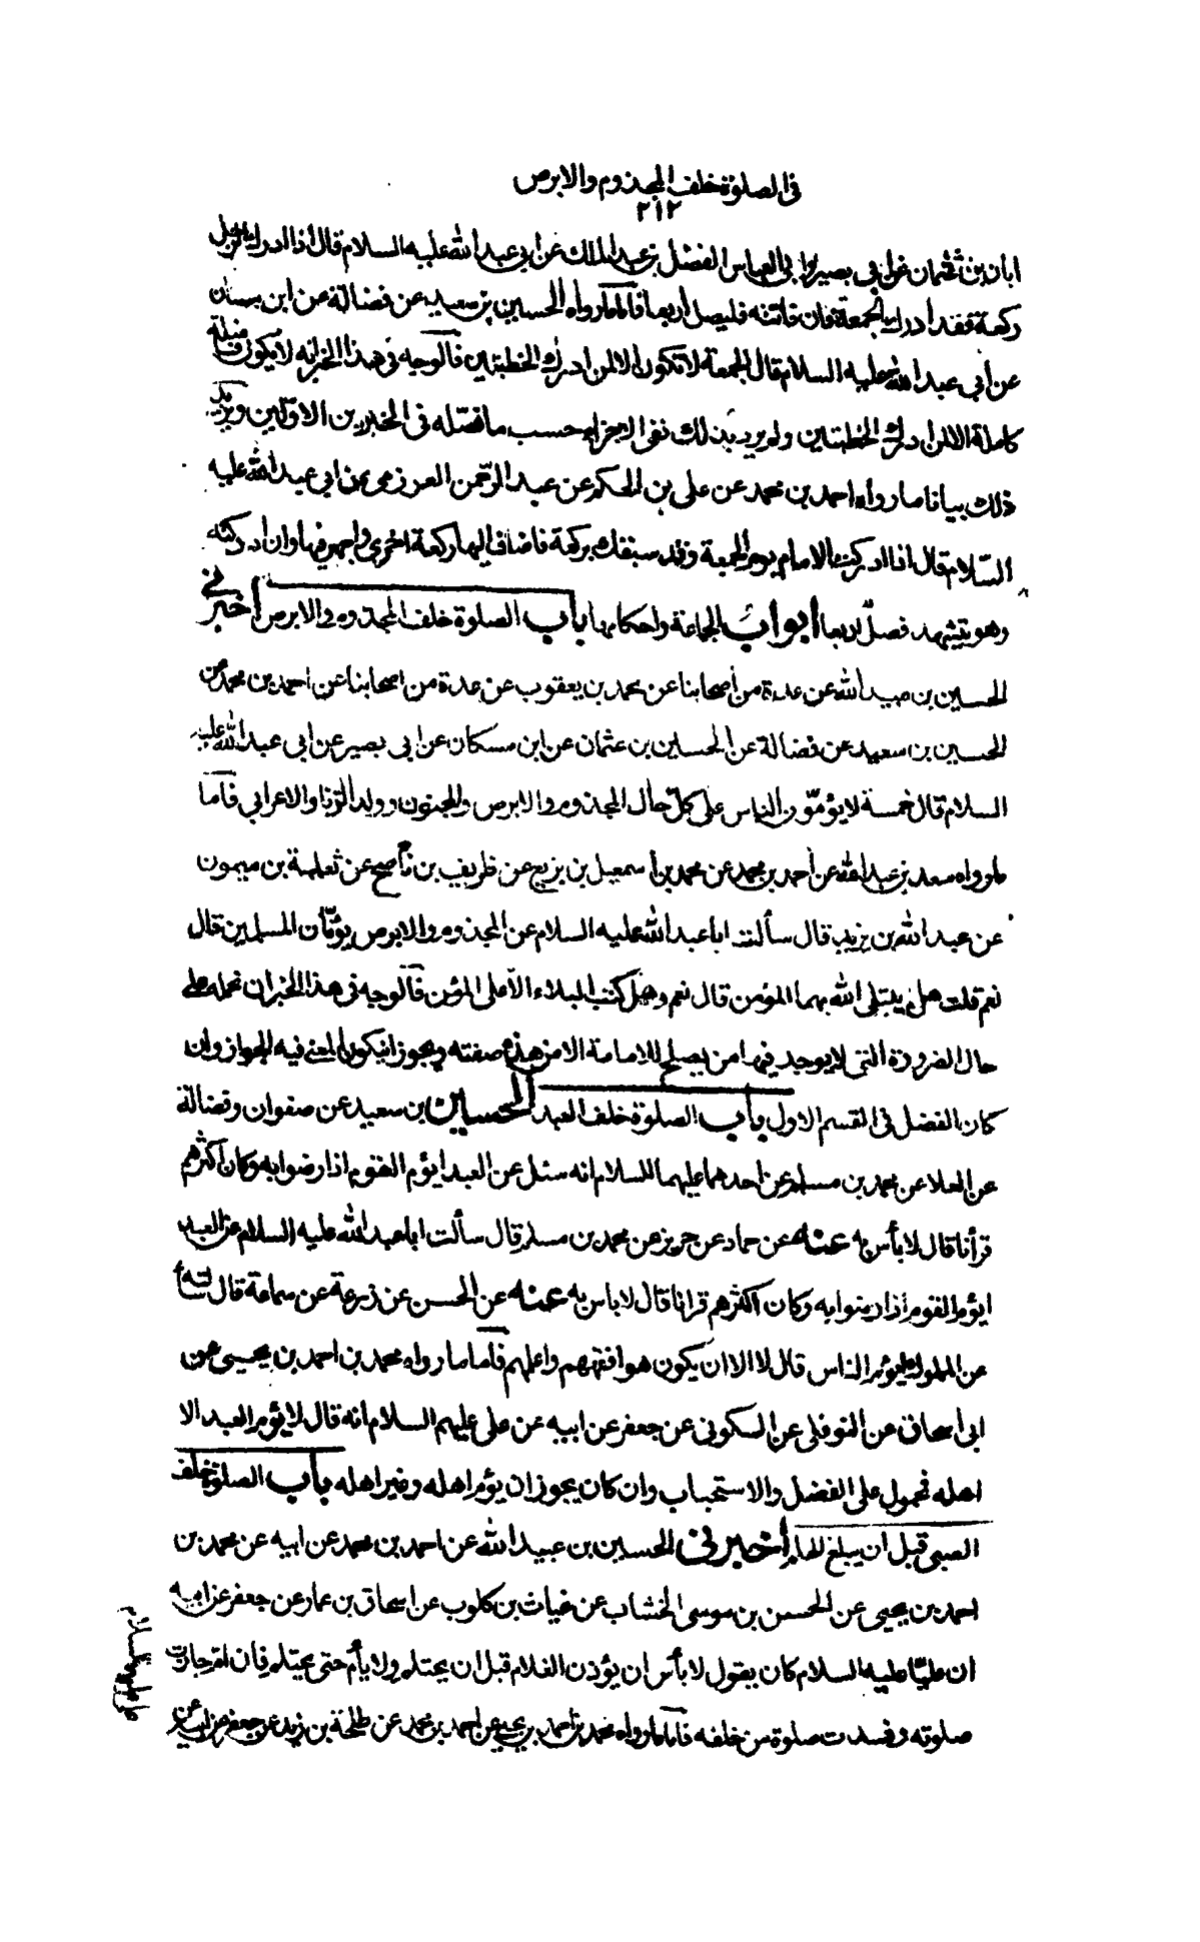 في الصلوة خلف المجذوم والابرص
٢١٢
ابان بن عثمان عن ابي بصير وابي العباس الفضل بن عبد الملك عن ابي عبد الله عليه السلام قال اذا ادرك الرجل
ركعة فقد ادرك الجمعة فان فاتته فليصل اربعا فاما ما رواه الحسين بن سعيد عن فضالة عن ابن سنان
عن ابي عبد الله عليه السلام قال الجمعة لا تكون الا لمن ادرك الخطبتين فالوجه في هذا الخبر انه لا يكون فضيلة
كاملة الا لمن ادرك الخطبتين ولم يرد بذلك نفي الاجزاء حسب ما فصله في الخبرين الاولين ويزيد
ذلك بيانا ما رواه احمد بن محمد عن علي بن الحكم عن عبد الرحمن العرزمي عن ابي عبد الله عليه
السلام قال اذا ادركت الامام يوم الجمعة وقد سبقك بركعة فاضاف اليها ركعة اخرى واجهر فيها وان ادركته
وهو يتشهد فصل اربعا ابواب الجماعة واحكامها باب الصلوة خلف المجذوم والابرص اخبرني
الحسين بن عبيد الله عن عدة من أصحابنا عن محمد بن يعقوب عن عدة من اصحابنا عن احمد بن محمد عن
الحسين بن سعيد عن فضالة عن الحسين بن عثمان عن ابن مسكان عن ابي بصير عن ابي عبد الله عليه
السلام قال خمسة لا يؤمّون الناس على كل حال المجذوم والابرص والمجنون وولد الزنا والاعرابي فاما
ما رواه سعد بن عبد الله عن أحمد بن محمد عن محمد بن أسمعيل بن بزيع عن ظريف بن ناصح عن ثعلبة بن ميمون
عن عبد الله بن يزيد قال سألت ابا عبد الله عليه السلام عن المجذوم والابرص يؤمّان المسلمين قال
نعم قلت هل يبتلي الله بهما المؤمن قال نعم وهل كتب البلاء الا على المؤمن فالوجه في هذا الخبر ان نحمله على
حال الضرورة التي لا يوجد فيها من يصلح للامامة الا من هذه صفته ويجوز ان يكون المعنى فيه الجواز وان
كان الفضل في القسم الاول باب الصلوة خلف العبد الحسين بن سعيد عن صفوان وفضالة
عن العلا عن محمد بن مسلم عن احدهما عليهما السلام انه سئل عن العبد ايؤم القوم اذا رضوا به وكان اكثرهم
قرأنا قال لا بأس به عنه عن حماد عن حريز عن محمد بن مسلم قال سألت ابا عبد الله عليه السلام عن العبد
ايؤم القوم اذا رضوا به وكان اكثرهم قرانا قال لا باس به عنه عن الحسن عن زرعة عن سماعة قال سألته
عن المملوك يؤم الناس قال لا الا ان يكون هو افقههم واعلمهم فاما ما رواه محمد بن احمد بن يحيى عن
ابي اسحاق عن النوفلي عن السكوني عن جعفر عن ابيه عن علي عليهم السلام انه قال لا يؤم العبد الا
اهله فمحمول على الفضل والاستحباب وان كان يجوز ان يؤم اهله وغير اهله باب الصلوة خلف
الصبي قبل ان يبلغ الحلم أخبرني الحسين بن عبيد الله عن احمد بن محمد عن ابيه عن محمد بن
احمد بن يحيى عن الحسن بن موسى الخشاب عن غياث بن كلوب عن اسحاق بن عمار عن جعفر عن ابيه
ان عليا عليه السلام كان يقول لا بأس ان يؤذن الغلام قبل ان يحتلم ولا يأم حتى يحتلم فان ام جازت
صلوته وفسدت صلوة من خلفه فاما ما رواه محمد بن احمد بن يحيى عن احمد بن محمد عن طلحة بن زيد عن جعفر عن ابيه عن
علي عليهم السلام